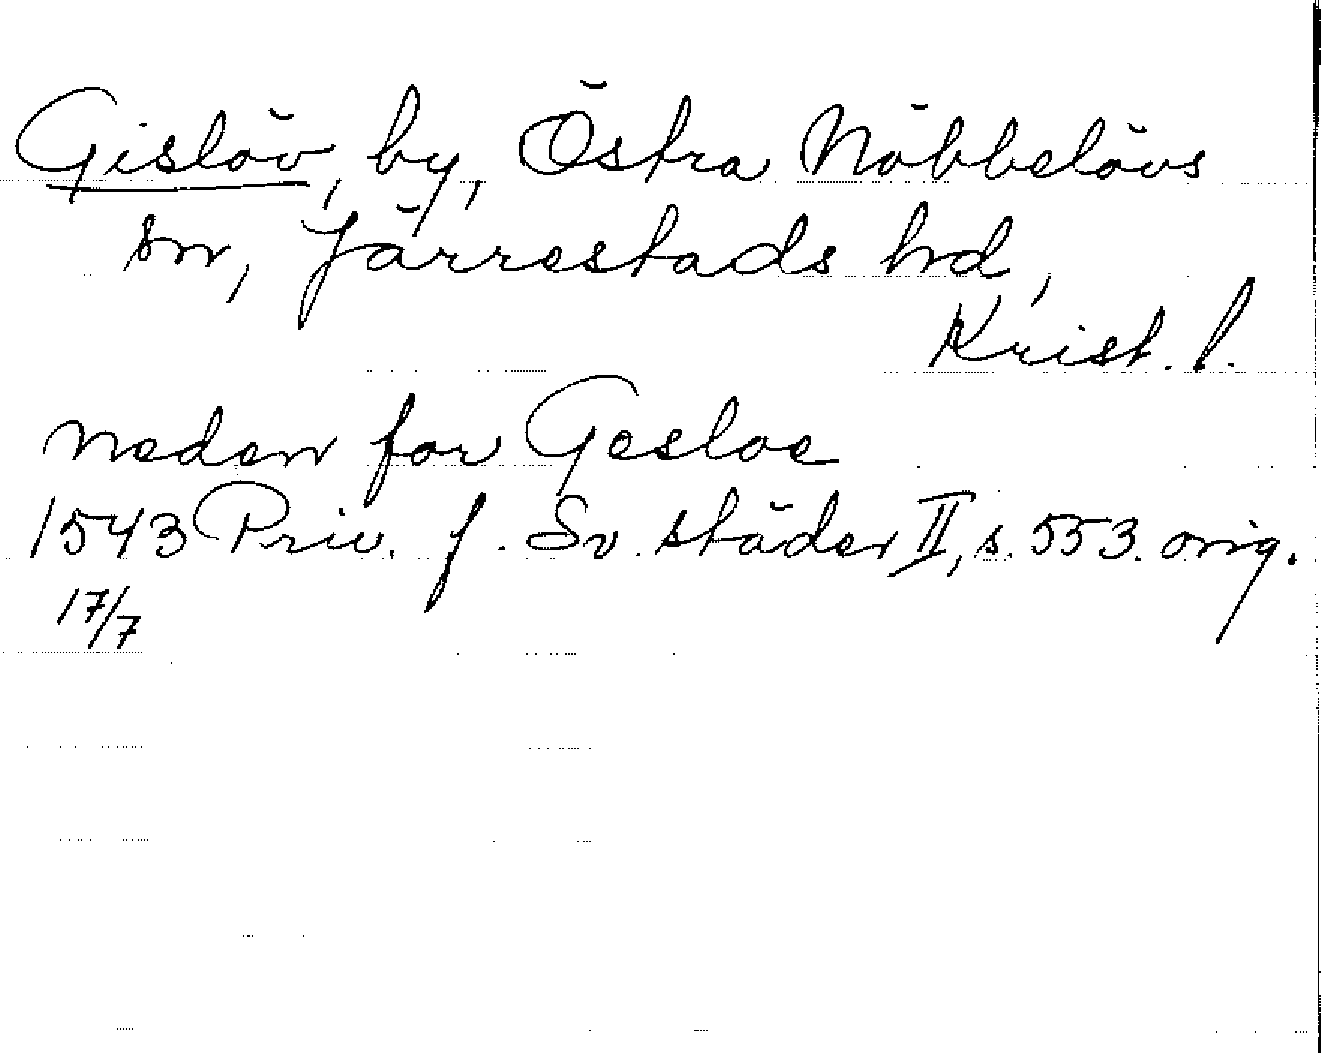 Gislöv, by, Östra Nöbbelövs
sn, Järrestads hd,
Krist. l.
neden for Gesloe
1543 Priv. f. Sv. städer II, s. 553. orig.
17/7